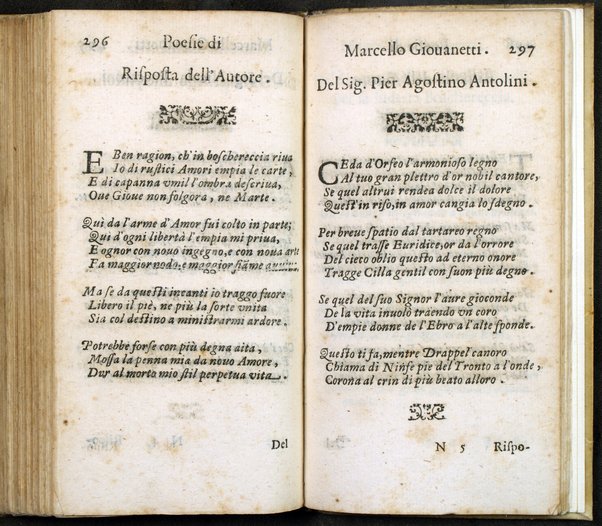 296 Poesie di
Risposta dell'Autore.
E Ben ragion, ch'in boschereccia riua
Io di rustici Amori empia le carte,
E di capanna vmil l'ombra descriua,
Oue Gioue non folgora, ne Marte.
Qui da l'arme d'Amor fui colto in parte;
Qui d'ogni libertà l'empia mi priua,
E ognor con nouo ingegno, e con noua arte
Fa maggior nodo, e maggior fiāme
Ma se da questi incanti io traggo fuore
Libero il piè, ne più la sorte vnita
Sia col destino a ministrarmi ardore.
Potrebbe forse con più degna aita,
Mossa la penna mia da nouo Amore,
Dar al morto mio stil perpetua vita.
Del
Marcello Giouanetti. 297
Del Sig. Pier Agostino Antolini.
CEda d'Orfeo l'armonioso legno
Al tuo gran plettro d'or nobil cantore,
Se quel altrui rendea dolce il dolore
Quest'in riso, in amor cangia lo sdegno.
Per breue spatio dal tartareo regno
Se quel trasse Euridice, or da l'orrore
Del cieco oblio questo ad eterno onore
Tragge Cilla gentil con suon più degno.
Se quel del suo Signor l'aure gioconde
De la vita inuolò traendo vn coro
D'empie donne de l'Ebro a l'alte sponde.
Questo ti fa, mentre Drappel canoro
Chiama di Ninfe pie del Tronto a l'onde,
Corona al crin di più beato alloro.
N 5 Rispo-